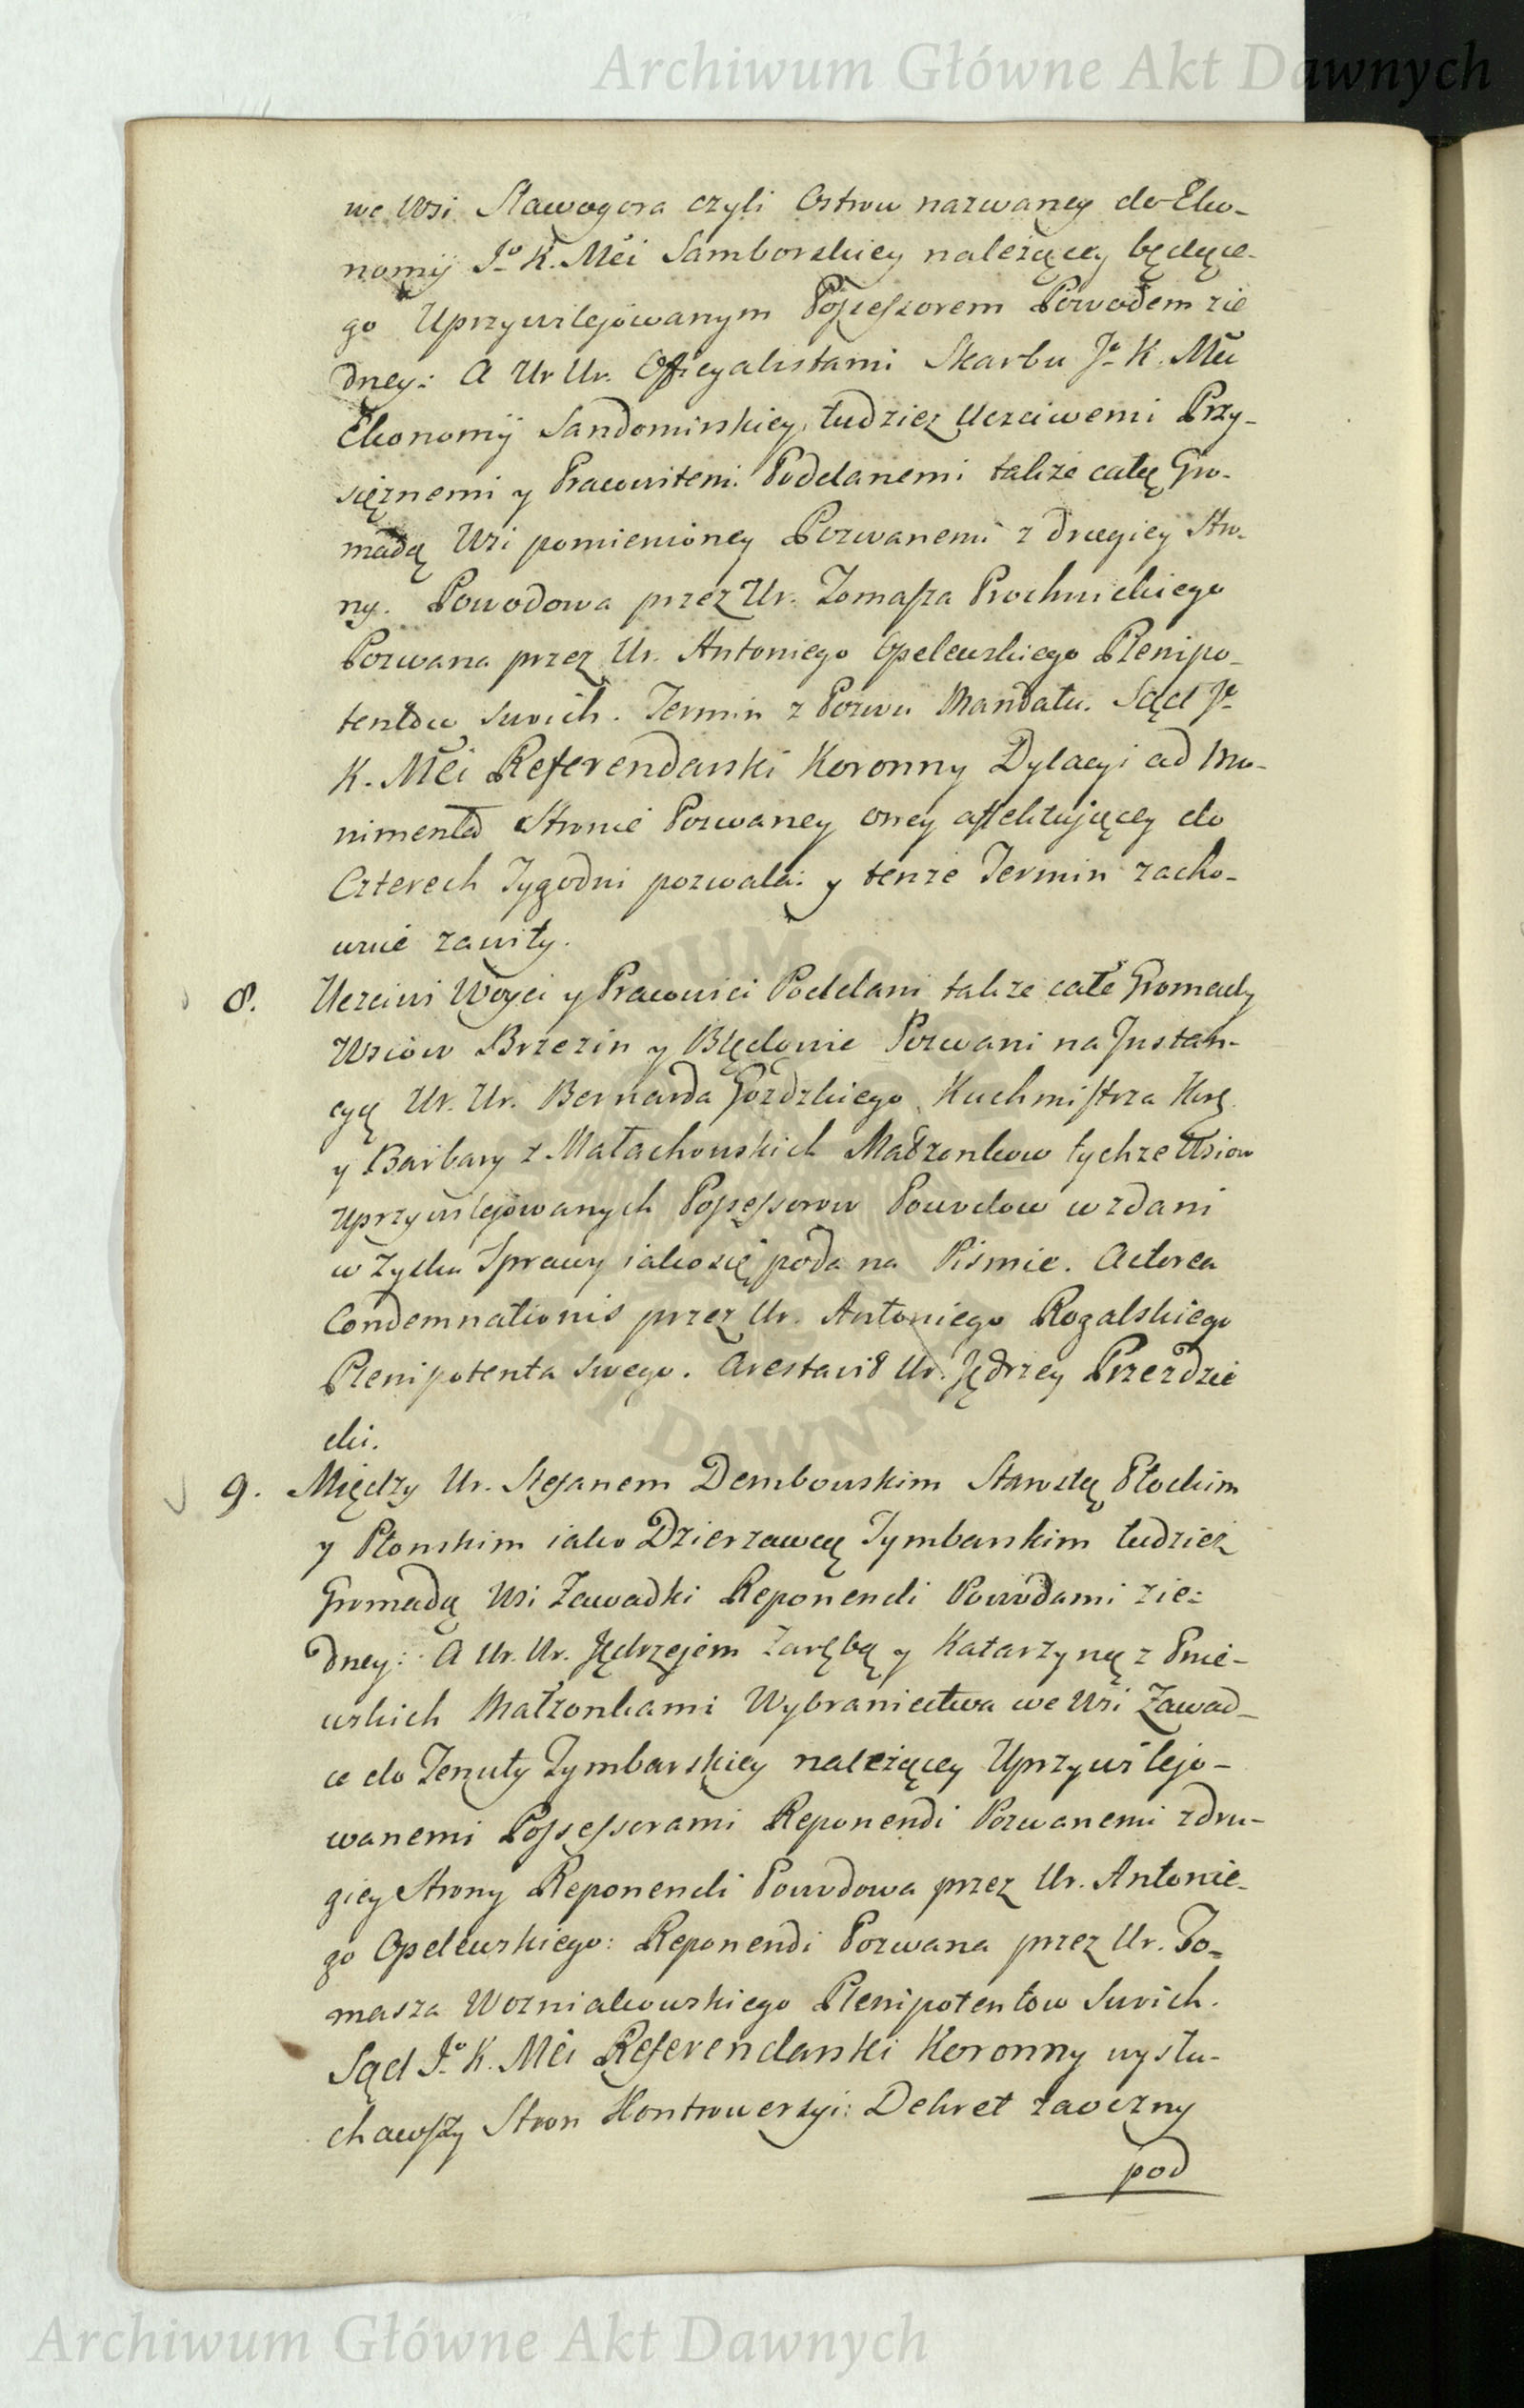 Archiwum Główne Akt Dawnych
we Wsi Stawogora czyli Ostrow nazwaney do Eko-
nomÿ Jo K. Mći Samborskiey należącey będące-
go Uprzywilejowanym Possessorem Powodem zie
dney: A Ur Ur. Officyalistami Skarbu Jo K. Mći
Ekonomÿ Sandomirskiey, tudziez Uczciwemi Przy-
siężnemi y Pracowitemi Poddanemi także całą Gro-
madą Wsi pomienioney Pozwanemi z drugiey Stro-
ny. Powodowa przez Ur. Tomasza Prochnickiego
Pozwana przez Ur. Antoniego Opelewskiego Plenipo-
tentow Swoich. Termin z Pozwu Mandatu. Sąd Jo
K. Mći Referendarski Koronny Dylacyi ad Mu-
nimenta Stronie Pozwaney oney affektującey do
Czterech Tygodni pozwala: y tenże Termin zacho-
wuie zawity.
8. Uczciwi Woyci y Pracowici Poddani także całe Gromady
Wsiow Brzezin y Błędowie Pozwani na Instan-
cyą Ur. Ur. Bernarda Gozdzkiego Kuchmistrza Kor.
y Barbary z Małachowskich Małżonkow tychże Wsiow
Uprzywilejowanych Possessorow Powodow wzdani
w Zysku Sprawy iako się poda na Pismie. Actorea
Condemnationis przez Ur. Antoniego Rogalskiego
Plenipotenta swego. Arestavit Ur. Jędrzey Przezdzie
cki.
9. Między Ur. Stefanem Dembowskim Starostą Płockim
y Płonskim iako Dzierzawcą Tymbarskim tudzież
Gromadą Wsi Zawadki Reponendi Powodami zie-
dney: A Ur. Ur. Jędrzejem Zarębą y Katarzyną z Pnie-
wskich Małżonkami Wybraniectwa we Wsi Zawad-
ce do Tenuty Tymbarskiey należącey Uprzywilejo-
wanemi Possessorami Reponendi Pozwanemi z dru-
giey Strony Reponendi Powodowa przez Ur. Antonie-
go Opelewskiego: Reponendi Pozwana przez Ur. To-
masza Wozniakowskiego Plenipotentow Swoich.
Sąd Jo K. Mći Referendarski Koronny wysłu-
chawszy Stron Kontrowersyi: Dekret zaoczny
pod
Archiwum Główne Akt Dawnych